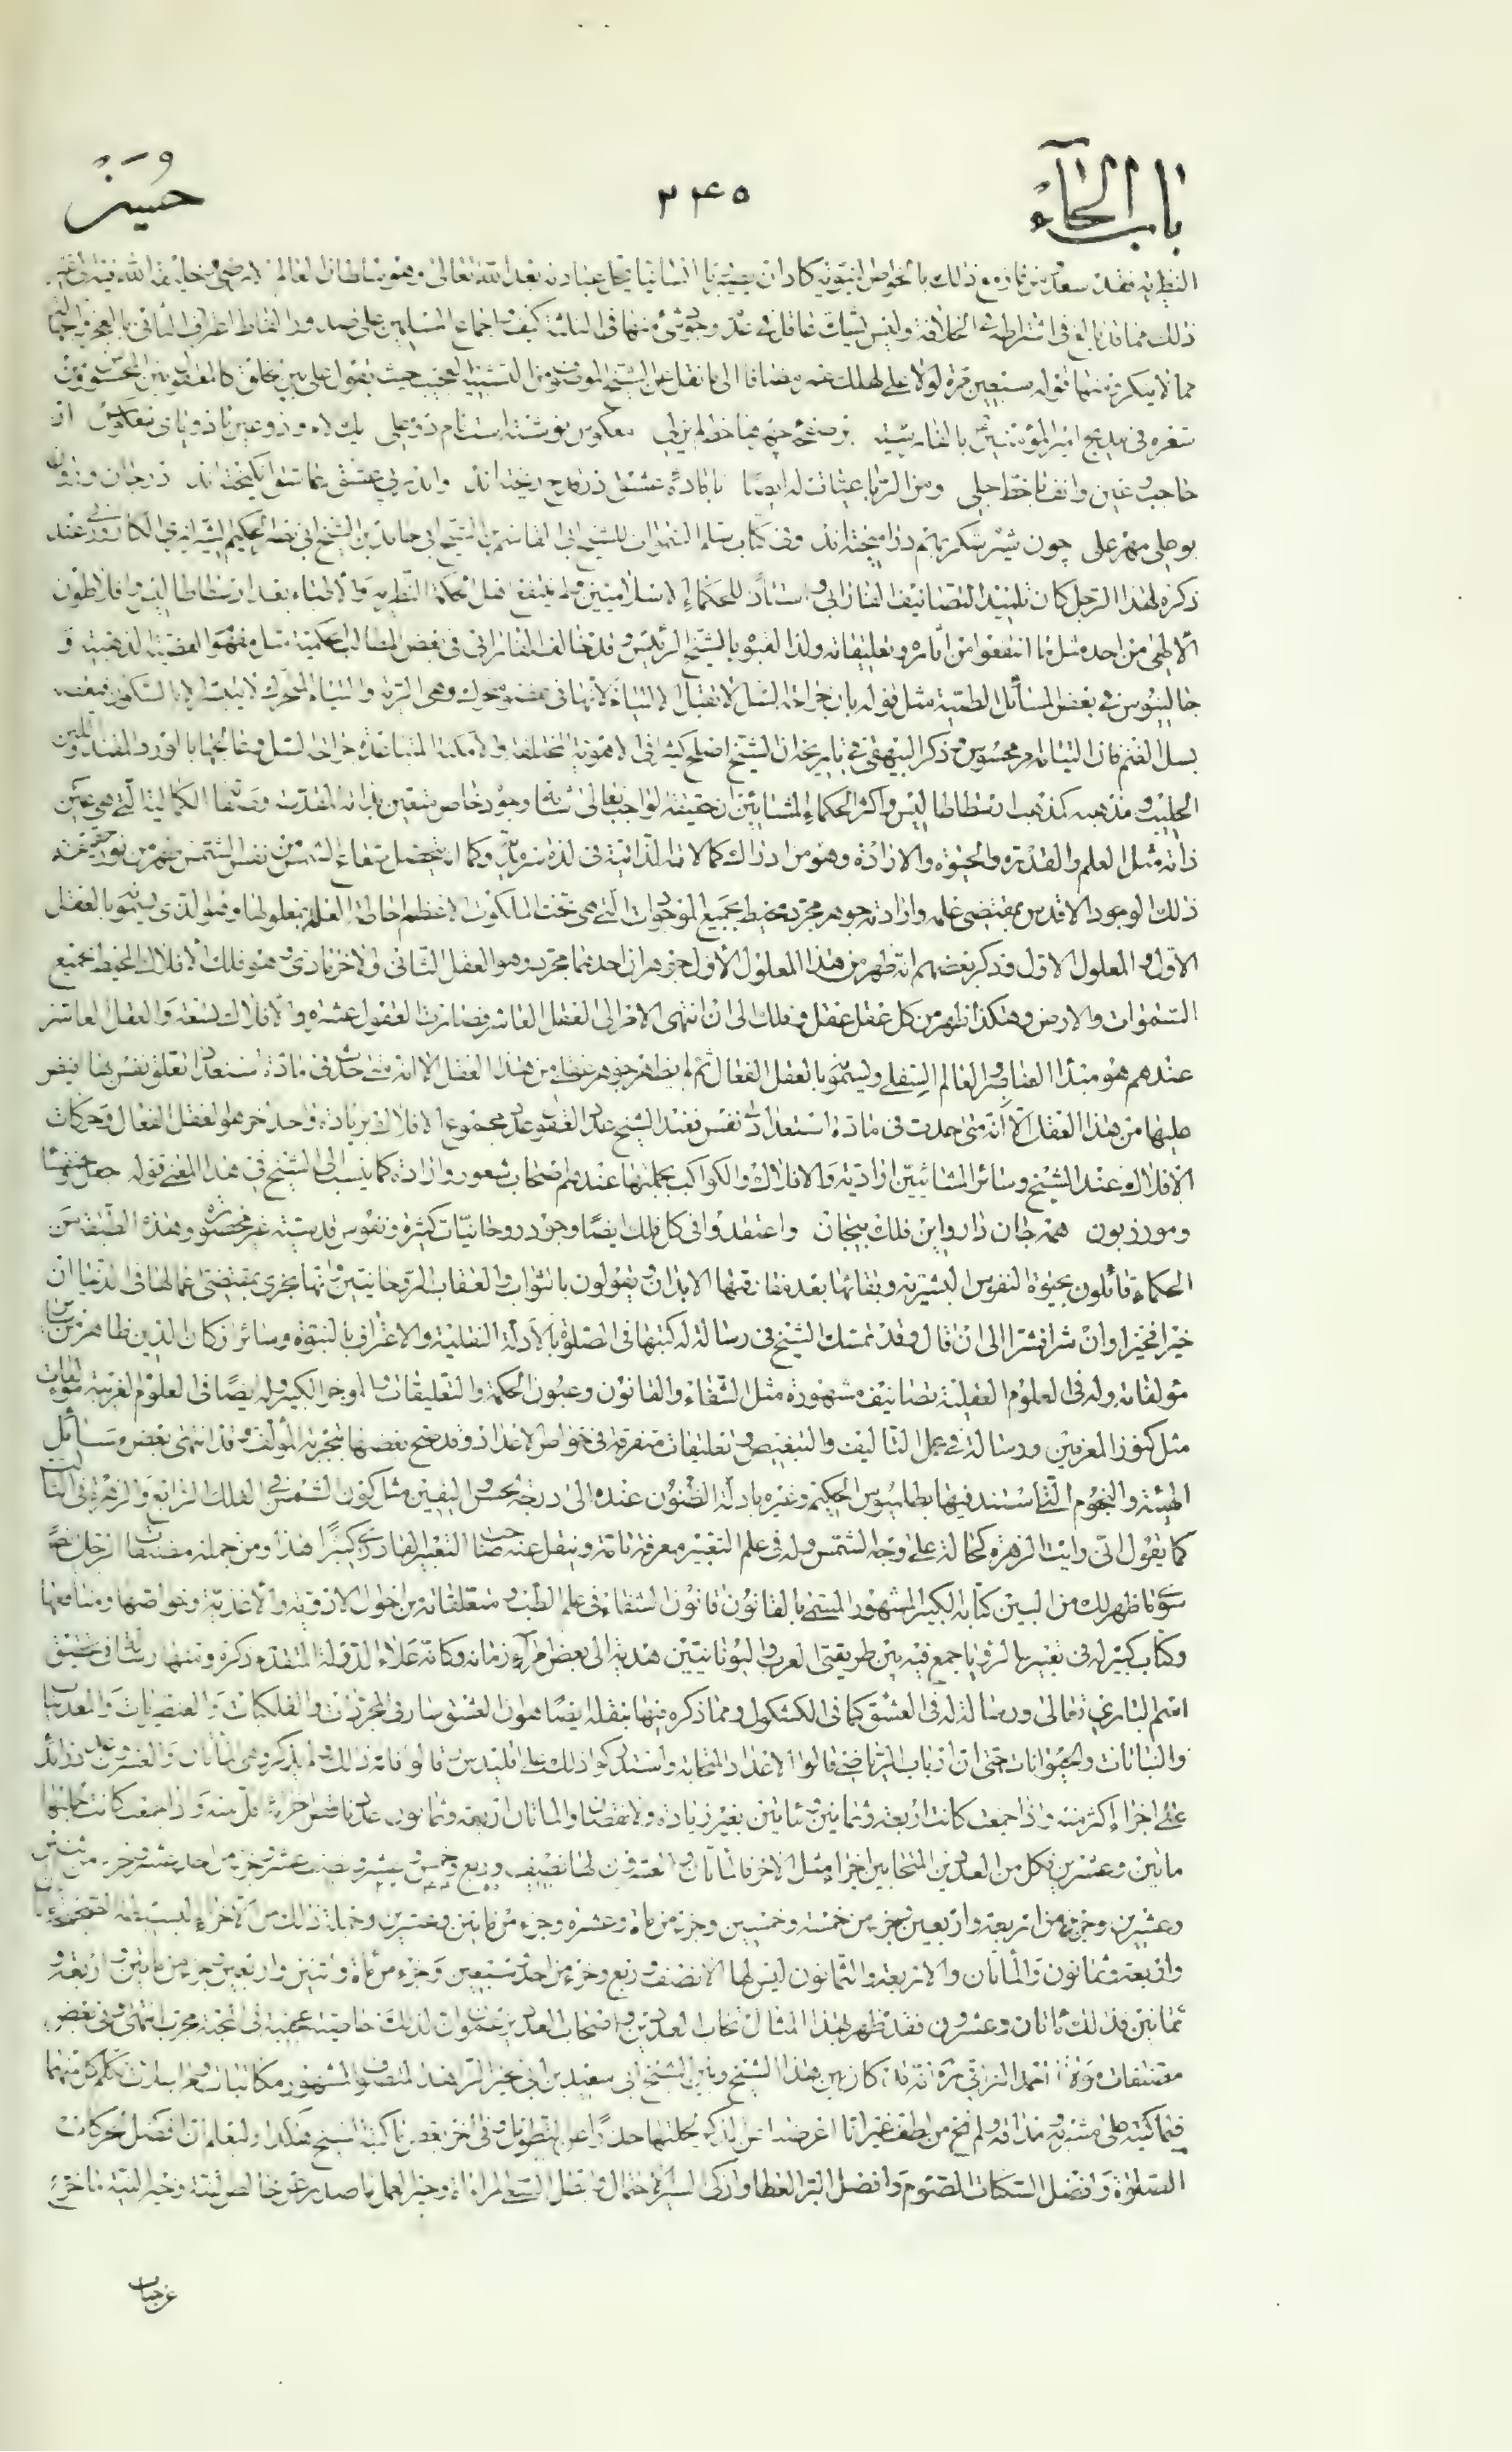 باب الحاء
٢٤٥
حسين
النظرية فقد سعد ومن فاز مع ذلك بالخواص النبوية كاد ان يصير ربا انسانيا تحل عبادته بعد الله تعالى وهو سلطان العالم الارضي وخليفة الله فيه الى غير
ذلك مما قد بالغ في اشتراطه في الخلافة وليس لشأن عاقل في عدم وجود شيء منها في الثلثة كيف واجماع المسلمين على صدور الفاظ اعتراف الثاني بالعجز والجهالة
مما لا ينكر ومنها قوله سبعين مرة لولا علي لهلك عمر مضافا الى ما نقل عن الشيخ الموصوف من التشبيه العجيب حيث يقول علي بين الخلق كالمعقول بين المحسوس ومن
شعره في مديح امير المؤمنين بالفارسية بر صفحه چهره ها خط لم يزلي معكوس نوشته است نام دو علي يك لام و دو عين با دو ياى معكوس از
حاجب و عين و انف با خط جلي ومن الرباعيات له ايضا تا باده عشق در قدح ريخته اند واندر پي عشق عاشق انگيخته اند در جان و روان
بوعلي مهر علي چون شير و شكر بهم در آميخته اند وفي كتاب سلم السموات للشيخ ابي القاسم بن الشيخ ابي حامد بن الشيخ ابي نصر الحكيم الشيرازي الكازروني عند
ذكره لهذا الرجل كان تلميذ التصانيف الفارابي واستاذ للحكماء الاسلاميين ولم ينتفع اهل الحكمة النظرية والاطباء بعد ارسطاطاليس وافلاطون
الالهي من احد مثل ما انتفعوا من آثاره وتعليقاته ولذا لقبوه بالشيخ الرئيس وقد خالف الفارابي في بعض المطالب الحكمية مثل مفهوم القضية الذهنية و
جالينوس في بعض المسائل الطبية مثل قوله بان جراحة السل لا تقبل الالتيام لانها في عضو متحرك وهي الرية والتيام المتحرك لا يثبت الا بالسكون فيقف
بسل الغنم فان التيامه محسوس وذكر البيهقي في تاريخه ان الشيخ اصلح كثيرا في الاهوية المختلفة والامكنة المتباعدة جراحة السل وعالجها بالورد والقند وتليين
الحليب ومذهبه كمذهب ارسطاطاليس واكثر الحكماء المشائين ان حقيقة الواجب تعالى شانه وجود خاص متعين بذاته المقدسة وصفاته الكمالية التي هي عين
ذاته مثل العلم والقدرة والحيوة والارادة وهو من ادراك كمالاته الذاتية في لذة سرمدية وكما ان يحصل شعاع الشمس من نفس الشمس ظهر من نور حقيقته
ذلك الوجود الاقدس بمقتضى علمه وارادته جوهر مجرد محيط بجميع الموجودات التي هي تحت الملكوت الاعظم احاطة العلة بمعلولها وهو الذي يسمونه بالعقل
الاول والمعلول الاول وذكر بعضهم انه ظهر من هذا المعلول الاول جوهران احدهما مجرد وهو العقل الثاني والاخر مادي وهو فلك الافلاك المحيط بجميع
السموات والارض وهكذا ظهر من كل عقل عقل وفلك الى ان انتهى الامر الى العقل العاشر فصارت العقول عشرة والافلاك تسعة والعقل العاشر
عندهم هو مبدأ العناصر والعالم السفلي ويسمونه بالعقل الفعال ثم لم يظهر جوهر عقلي من هذا العقل الا انه متى حدث في مادة استعداد تعلق نفس بها يفيض
عليها من هذا العقل الا انه متى حدث في مادة استعداد نفس فعند الشيخ عدد العقول عدد مجموع الافلاك بزيادة واحد آخر هو العقل الفعال وحركات
الافلاك عند الشيخ وسائر المشائين ارادية والافلاك والكواكب بجملتها عندهم اصحاب شعور وارادة كما ينسب الى الشيخ في هذا المعنى قوله
ومور زبون همه جان دار و اين فلك بيجان واعتقدوا في كل فلك ايضا وجود روحانيات كثيرة ونفوس قدسية غير محصورة وهذه الطبقة من
الحكماء قائلون بحيوة النفوس البشرية وبقائها بعد مفارقتها الابدان ويقولون بالثواب والعقاب الروحانيين وانها تجزى بمقتضى اعمالها في الدنيا ان
خيرا فخيرا وان شرا فشرا الى ان قال وقد تمسك الشيخ في رسالة له كتبها في الصلوة بالادلة النقلية والاعتراف بالنبوة وسائر اركان الدين ظاهر من
مؤلفاته وله في العلوم العقلية تصانيف مشهورة مثل الشفاء والقانون وعيون الحكمة والتعليقات والاوجز الكبير وله ايضا في العلوم الغريبة مؤلفات
مثل كنوز المعزمين ورسالة في عمل التأليف والتبغيض وتعليقات متفرقة في خواص الاعداد وقد صح بعضها بتجربة المؤلف وقد انتهى بعض مسائل
الهيئة والنجوم التي استند فيها بطلميوس الحكيم وغيره بادلة الظنون عنده الى درجة الحس واليقين مثل كون الشمس في الفلك الرابع والزهرة في الثالث
كما يقول اني رأيت الزهرة كخالة على وجه الشمس وله في علم التعبير معرفة تامة وينقل عنه صاحب التعبير القادري كثيرا هذا ومن جملة مصنفات الرجل ايضا
سوى ما ظهر لك من البين كتابه الكبير المشهور المسمى بالقانون قانون الشفاء في علم الطب ومتعلقاته من احوال الادوية والاغذية وخواصها ومنافعها
وكتاب كبير له في تعبير الرؤيا جمع فيه بين طريقتي العرب واليونانيين هدية الى بعض امراء زمانه وكانه علاء الدولة المتقدم ذكره ومنها رسالة في تحقيق
اسم الباري تعالى ورسالة له في العشق كما في الكشكول ومما ذكره فيها بنقله ايضا هو ان العشق سار في المجردات والفلكيات والعنصريات والمعدنيات
والنباتات والحيوانات حتى ان ارباب الرياضي قالوا الاعداد المتحابة واستدركوا ذلك على اقليدس قالوا فاته ذلك ولم يذكره وهي المائتان والعشرون عدد زائد
على اجزاء اكثر منه واذا جمعت كانت اربعة وثمانين ومائتين بغير زيادة ولا نقصان والمائتان اربعة وثمانون عدد ناقص اجزاؤه اقل منه واذا جمعت كانت جملتها
مائتين وعشرين فكل من العددين المتحابين اجزاء مثل الاخر فالمائتان والعشرون لها نصف وربع وخمس وعشر ونصف عشر وجزء من احد عشر وجزء من اثنين
وعشرين وجزء من اربعة واربعين وجزء من خمسة وخمسين وجزء من مائة وعشرة وجزء من مائتين وعشرين وجملة ذلك من الاجزاء البسيطة الصحيحة مائتان
واربعة وثمانون والمائتان والاربعة والثمانون ليس لها الا نصف وربع وجزء من احد وسبعين وجزء من مائة واثنين واربعين وجزء من مائتين واربعة و
ثمانين فذلك مائتان وعشرون فقد ظهر بهذا المثال تحاب العددين واصحاب العدد يزعمون ان لذلك خاصية عجيبة في المحبة مجرب انتهى وفي بعض
مصنفات مولانا احمد النراقي ره انه كان بين هذا الشيخ وبين الشيخ ابي سعيد بن ابي الخير الزاهد المتصوف المشهور مكاتبات ومراسلات تكلم كل منهما
فيما كتبه على مشربه ومذاقه ولم تخ من لطف غير انا اعرضنا عن ذكر جملتها حذرا عن التطويل وفي آخر بعض ما كتبه الشيخ هكذا وليعلم ان افضل الحركات
الصلوة وافضل السكنات الصوم وافضل البر العطاء وازكى السير الاحتمال وابطل السعي المراءاة وخير العمل ما صدر عن خالص نية وخير النية ما خرج
عن جناب